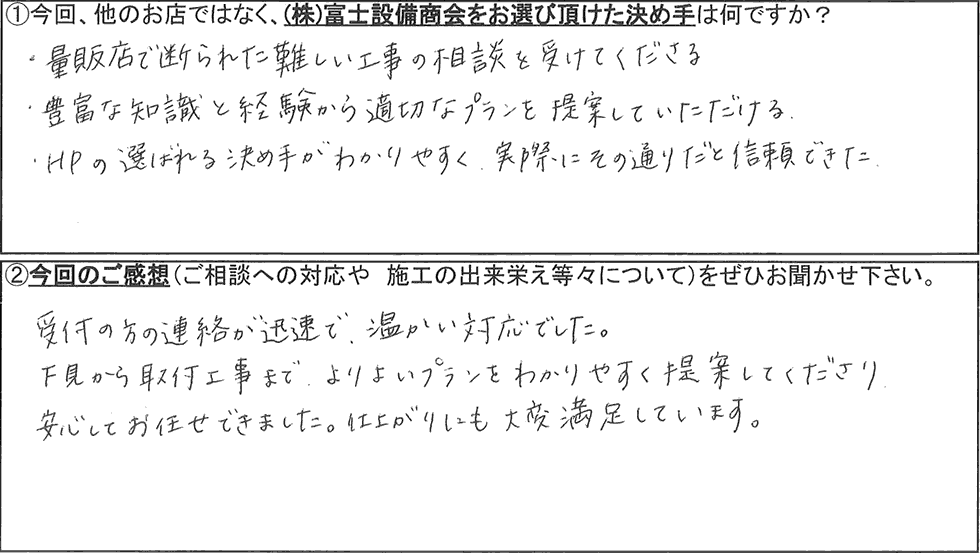 ①今回、他のお店ではなく、(株)富士設備商会をお選び頂けた決め手は何ですか？
・量販店で断られた難しい工事の相談を受けてくださる
・豊富な知識と経験から適切なプランを提案していただける.
・HPの選ばれる決め手がわかりやすく、実際にその通りだと信頼できた.
②今回のご感想(ご相談への対応や　施工の出来栄え等々について)をぜひお聞かせ下さい。
受付の方の連絡が迅速で、温かい対応でした。
下見から取付工事まで、よりよいプランをわかりやすく提案してくださり、
安心してお任せできました。仕上がりにも大変満足しています。